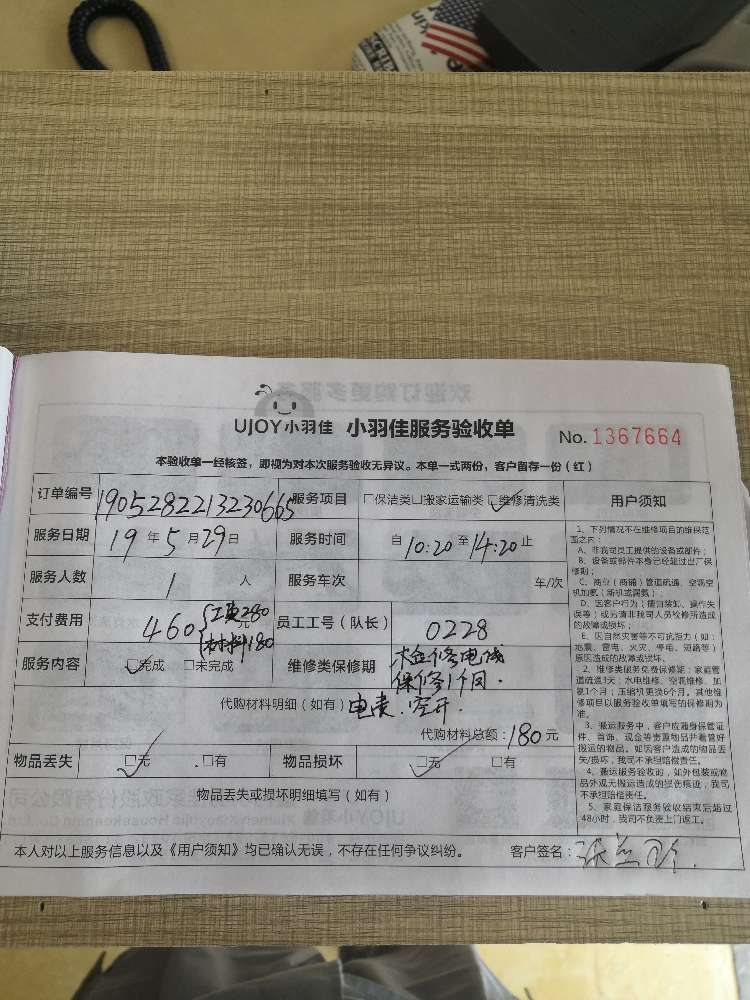 UJOY小羽佳 小羽佳服务验收单 No. 1367664
本验收单一经核签，即视为对本次服务验收无异议。本单一式两份，客户留存一份（红）
订单编号 1905282213230665 服务项目 □保洁类□搬家运输类□维修清洗类
服务日期 19年5月29日 服务时间 自10:20至14:20止
服务人数 1人 服务车次 车/次
支付费用 460元 工费280 材料180 员工工号（队长） 0228
服务内容 □完成 □未完成 维修类保修期 检修电线 保修1个月.
代购材料明细（如有） 电表.空开
代购材料总额：180元
物品丢失 □无 □有 物品损坏 □无 □有
物品丢失或损坏明细填写（如有）
本人对以上服务信息以及《用户须知》均已确认无误，不存在任何争议纠纷。 客户签名：
用户须知
1、下列情况不在维修项目的维保范
围之内：
A、非我司员工提供的设备或部件；
B、设备或部件本身已经超过出厂保
修期；
C、商业（商铺）管道疏通、空调空
机加氟（新机或漏氟）；
D、因客户行为（擅自装卸、操作失
误等）或另请非我司人员检修所造成
的故障或损坏；
E、因自然灾害等不可抗拒力（如：
地震、雷电、火灾、停电、短路等）
原因造成的故障或损坏。
2、维修类服务免费保修期：家庭管
道疏通3天；水电维修、空调维修、加
氟1个月；压缩机更换6个月。其他维
修项目以服务验收单填写的保修期为
准。
3、搬运服务中，客户应随身保管证
件、首饰、现金等贵重物品并看管好
搬运的物品。如因客户造成的物品丢
失/损坏，我司不承担赔偿责任。
4、搬运服务验收时，如外包装或物
品外观无搬运造成的损伤痕迹，我司
不承担赔偿责任。
5、家庭保洁服务验收结束后超过
48小时，我司不负责上门返工。